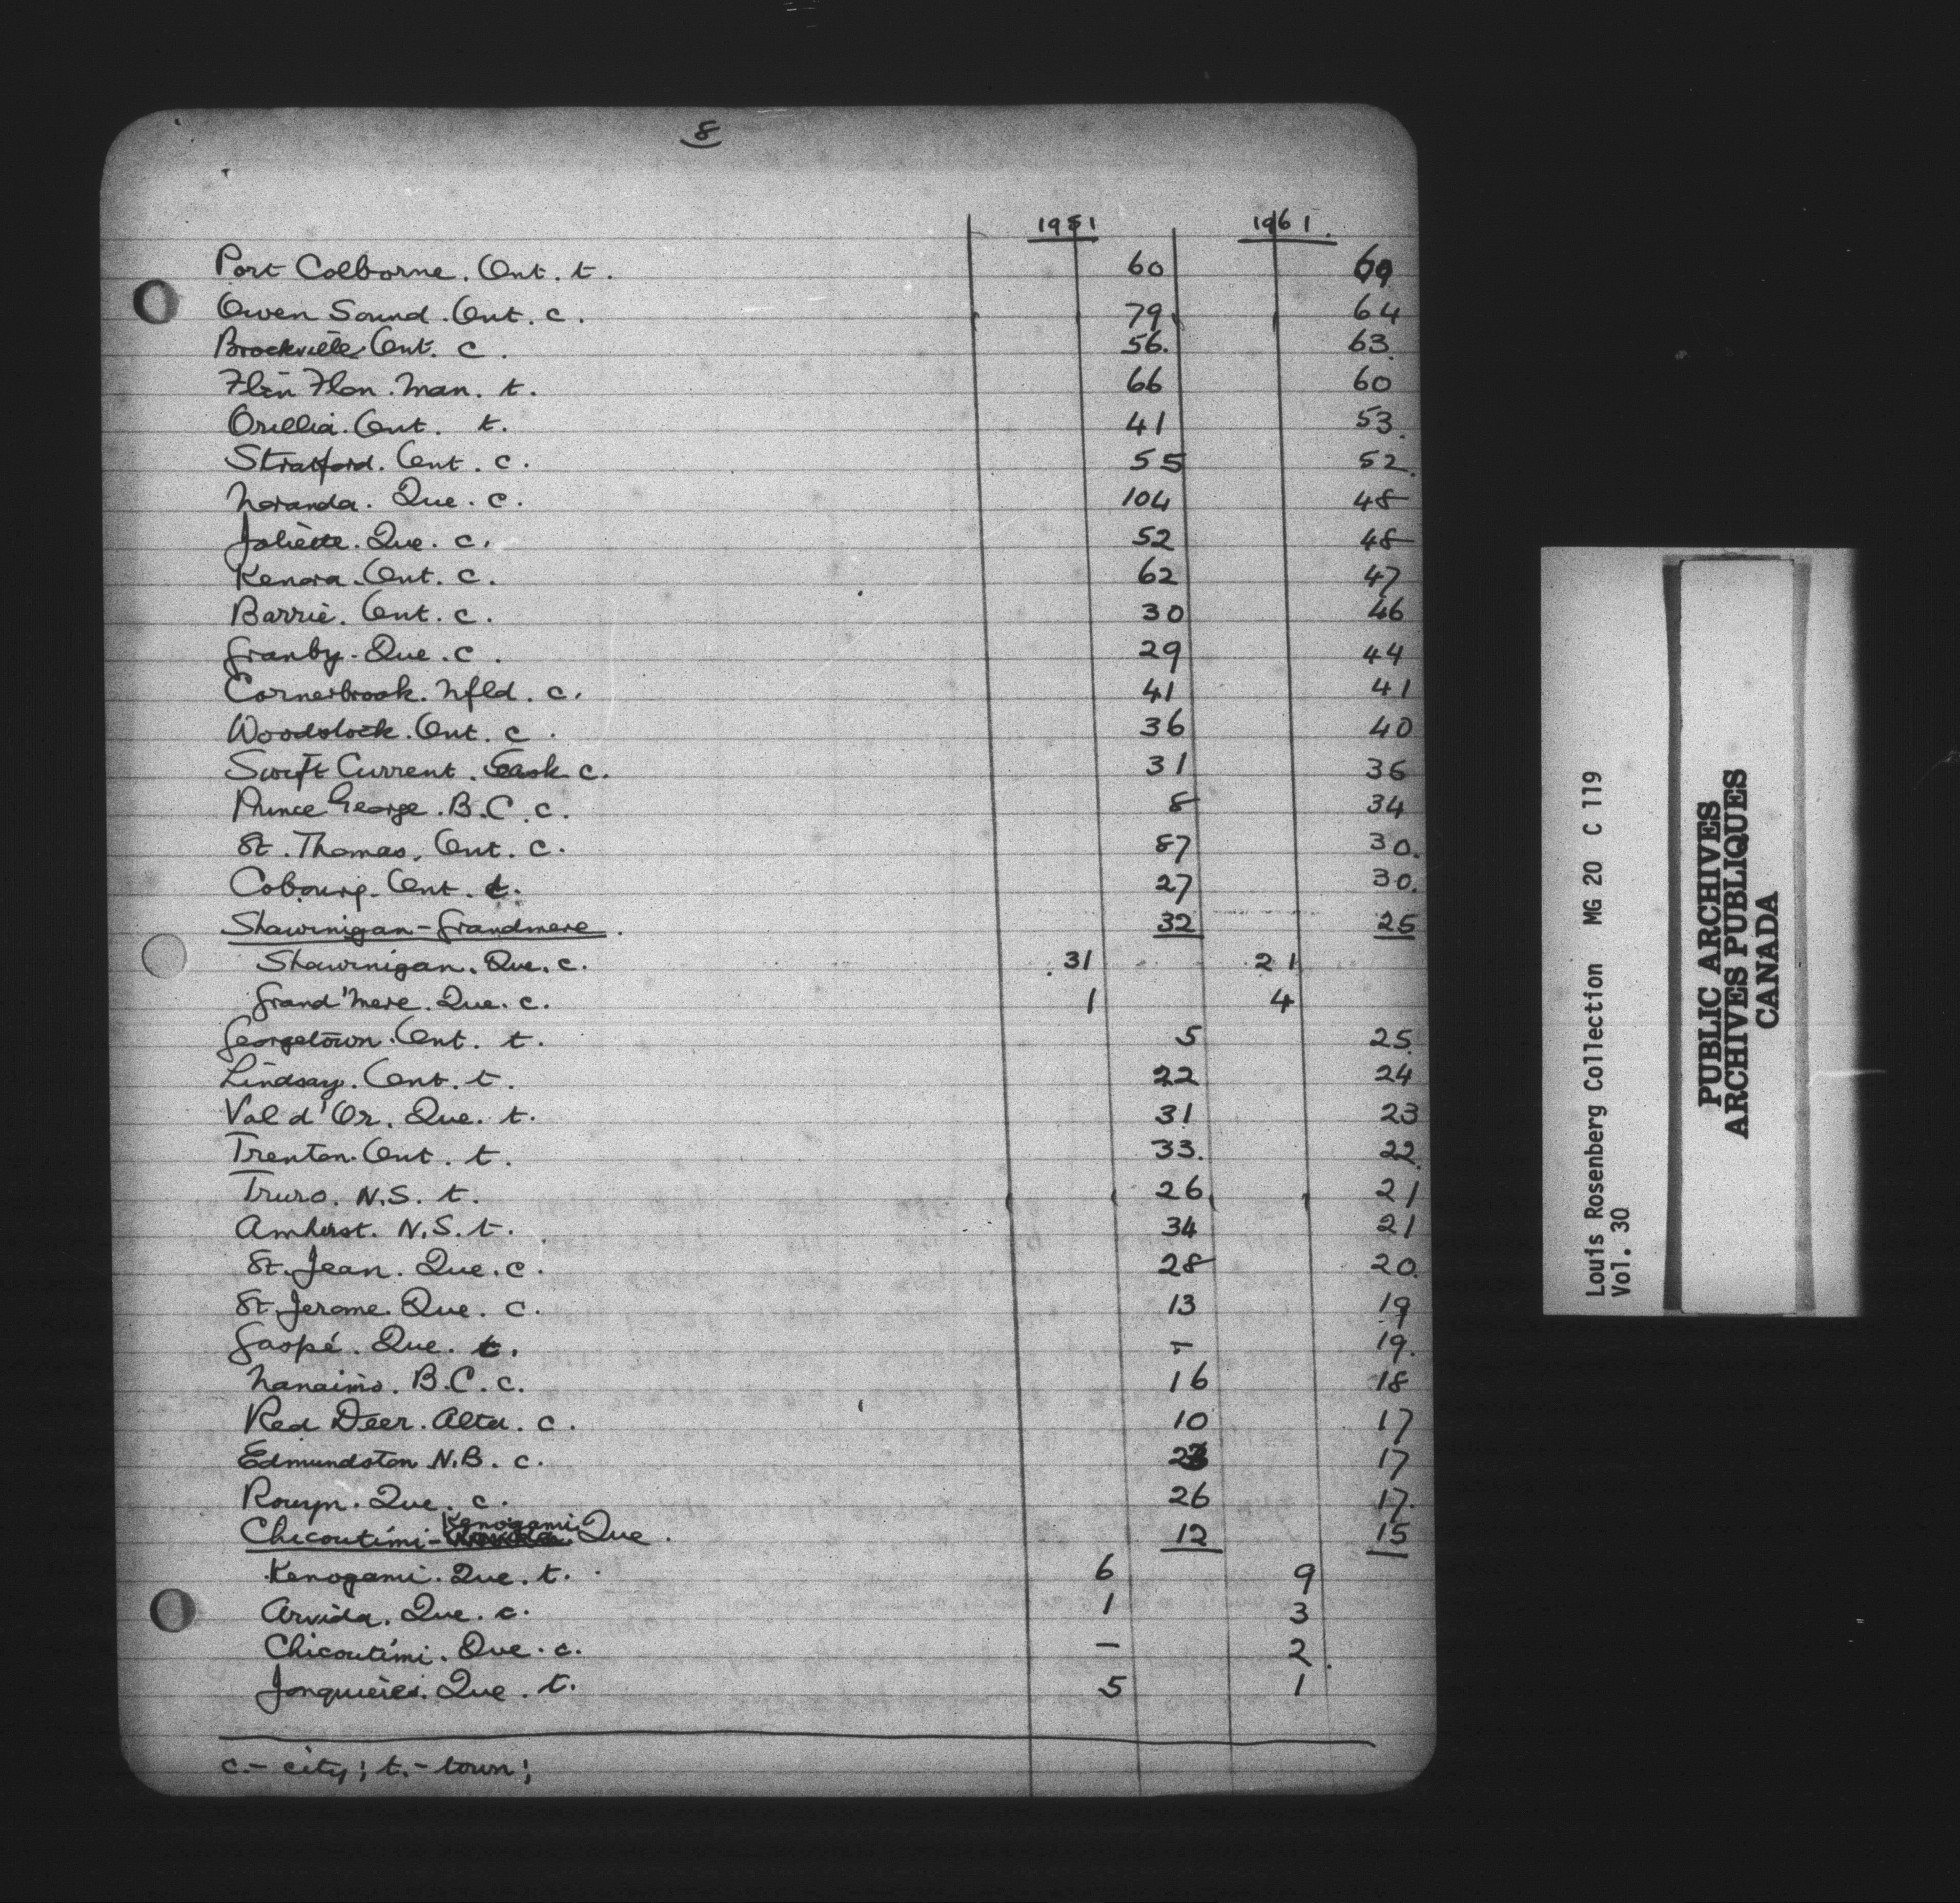 8
1951 1961.
Port Colborne. Ont. t. 60 69
Owen Sound. Ont. c. 79 64
Brockville Ont. c. 56. 63.
Flin Flon. Man. t. 66 60
Orillia. Ont. t. 41 53.
Stratford. Ont. c. 55 52.
Noranda. Que. c. 104 48
Joliette. Que. c. 52 48
Kenora. Ont. c. 62 47
Barrie. Ont. c. 30 46
Granby. Que. c. 29 44
Cornerbrook. Nfld. c. 41 41
Woodstock. Ont. c. 36 40
Swift Current. Sask c. 31 36
Prince George. B.C. c. 8 34
St. Thomas. Ont. c. 87 30.
Cobourg. Ont. t. 27 30.
Shawinigan-Grandmere. 32 25
Shawinigan. Que. c. 31 21
Grand'mere. Que. c. 1 4
Georgetown. Ont. t. 5 25.
Lindsay. Ont. t. 22 24
Val d'Or. Que. t. 31 23
Trenton. Ont. t. 33. 22.
Truro. N.S. t. 26 21
Amherst. N.S. t. 34 21
St. Jean. Que. c. 28 20.
St. Jerome. Que. c. 13 19
Gaspé. Que. t. - 19.
Nanaimo. B.C. c. 16 18
Red Deer. Alta. c. 10 17
Edmundston N.B. c. 17
Rouyn. Que. c. 26 17.
Chicoutimi-Kenogami Que. 12 15
Kenogami. Que. t. 6 9
Arvida. Que. c. 1 3
Chicoutimi. Que. c. — 2.
Jonquieres. Que. t. 5 1
c.- city; t.- town;
Louis Rosenberg Collection MG 20 C 119
Vol. 30
PUBLIC ARCHIVES
ARCHIVES PUBLIQUES
CANADA